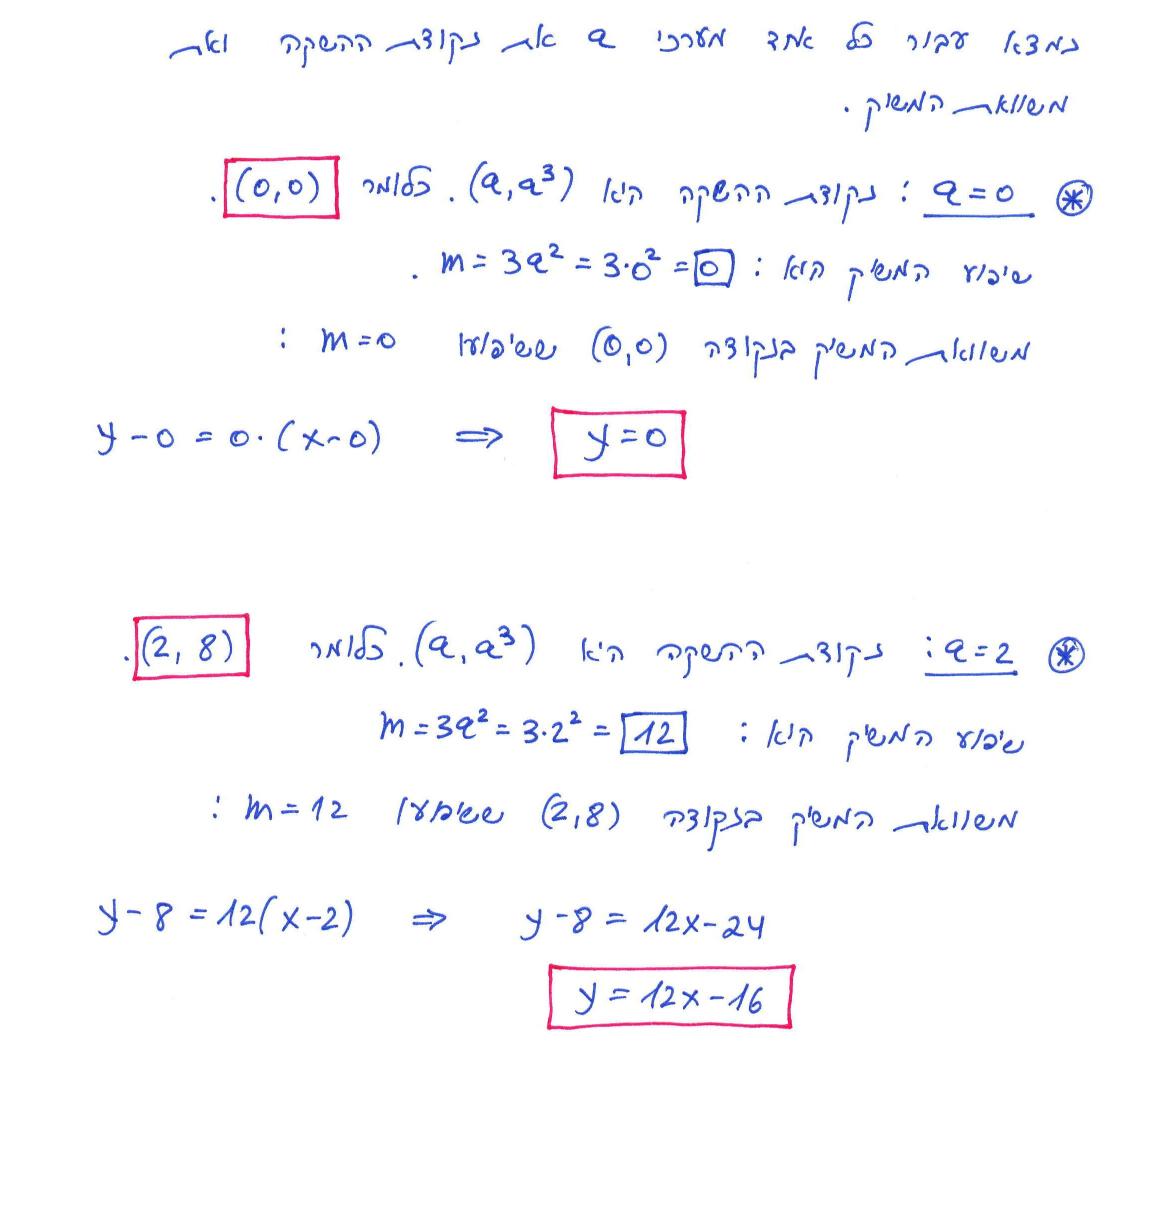 נמצא עבור כל אחד מערכי a את נקודת ההשקה ואת
משוואת המשיק.
⊛ a=0 : נקודת ההשקה היא (a,a³). כלומר (0,0).
שיפוע המשיק הוא : m=3a²=3·0²=0.
משוואת המשיק בנקודה (0,0) ששיפועו m=0 :
y-0=0·(x-0) ⇒ y=0
⊛ a=2 : נקודת ההשקה היא (a,a³). כלומר (2,8).
שיפוע המשיק הוא : m=3a²=3·2²=12
משוואת המשיק בנקודה (2,8) ששיפועו m=12 :
y-8=12(x-2) ⇒ y-8=12x-24
y=12x-16